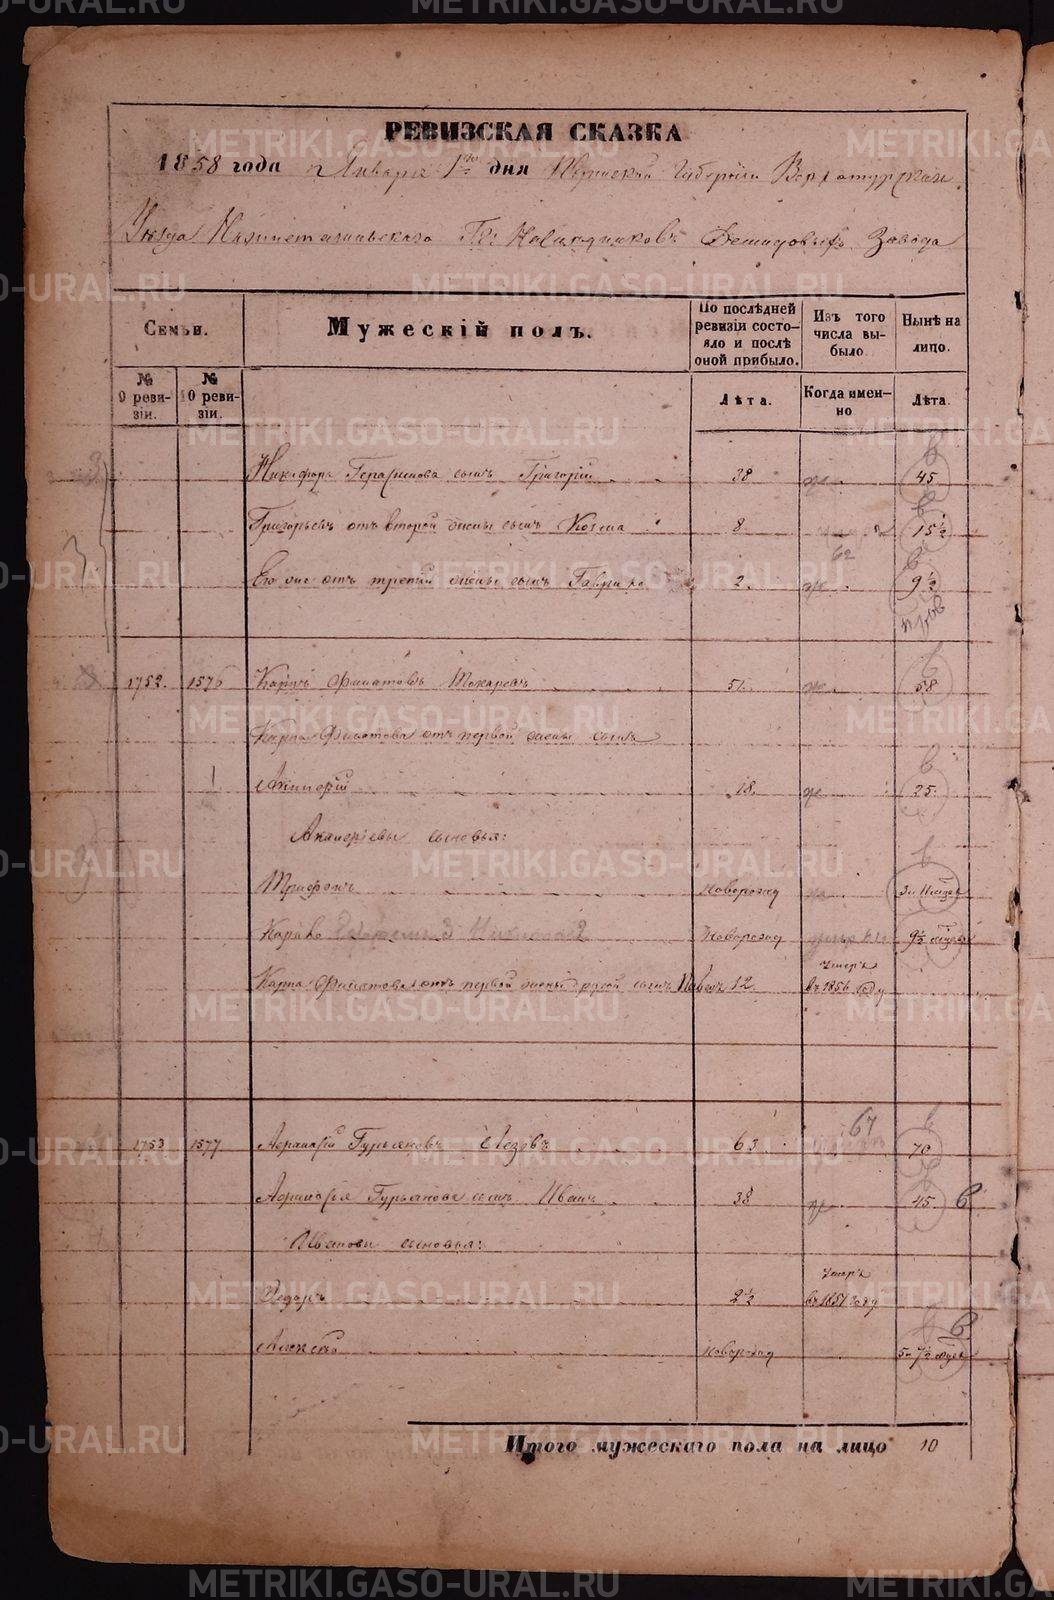 РЕВИЗСКАЯ СКАЗКА
1858 года Января 1го дня Пермской Губернии Верхотурскаго
Уезда Нижнетагильскаго Гг. Наследников Демидовых Завода
Семьи.
Мужескій полъ.
По послѣдней ревизіи состояло и послѣ оной прибыло.
Изъ того числа выбыло.
Нынѣ на лицо.
№ 9 ревизіи.
№ 10 ревизіи.
Лѣта.
Когда именно
Лѣта.
Никифора Герасимова сынъ Григорій 38 45
Григорьевъ отъ второй жены сынъ Козма 8 15½
62
Его же отъ третей жены сынъ Гаврило 2. 9½
1752. 1576 Карпъ Филатовъ Токаревъ 51. 58
Карпа Филатова отъ первой жены сынъ
18. 25.
сыновья:
Трифонъ Новорожд 3 и 11 мѣсяц
Новорожд 9½
Умеръ
Карпа Филатова отъ первой жены другой сынъ Павелъ 12. въ 1856 году
67
1753 1577 Гурьяновъ 63. 70
Гурьянова сынъ Иванъ 38 45
Ивановы сыновья:
Умеръ
Федоръ 2½ въ 1851 году
Алексей Новорожд 5 и 7½
Итого мужескаго пола на лицо 10
METRIKI.GASO-URAL.RU